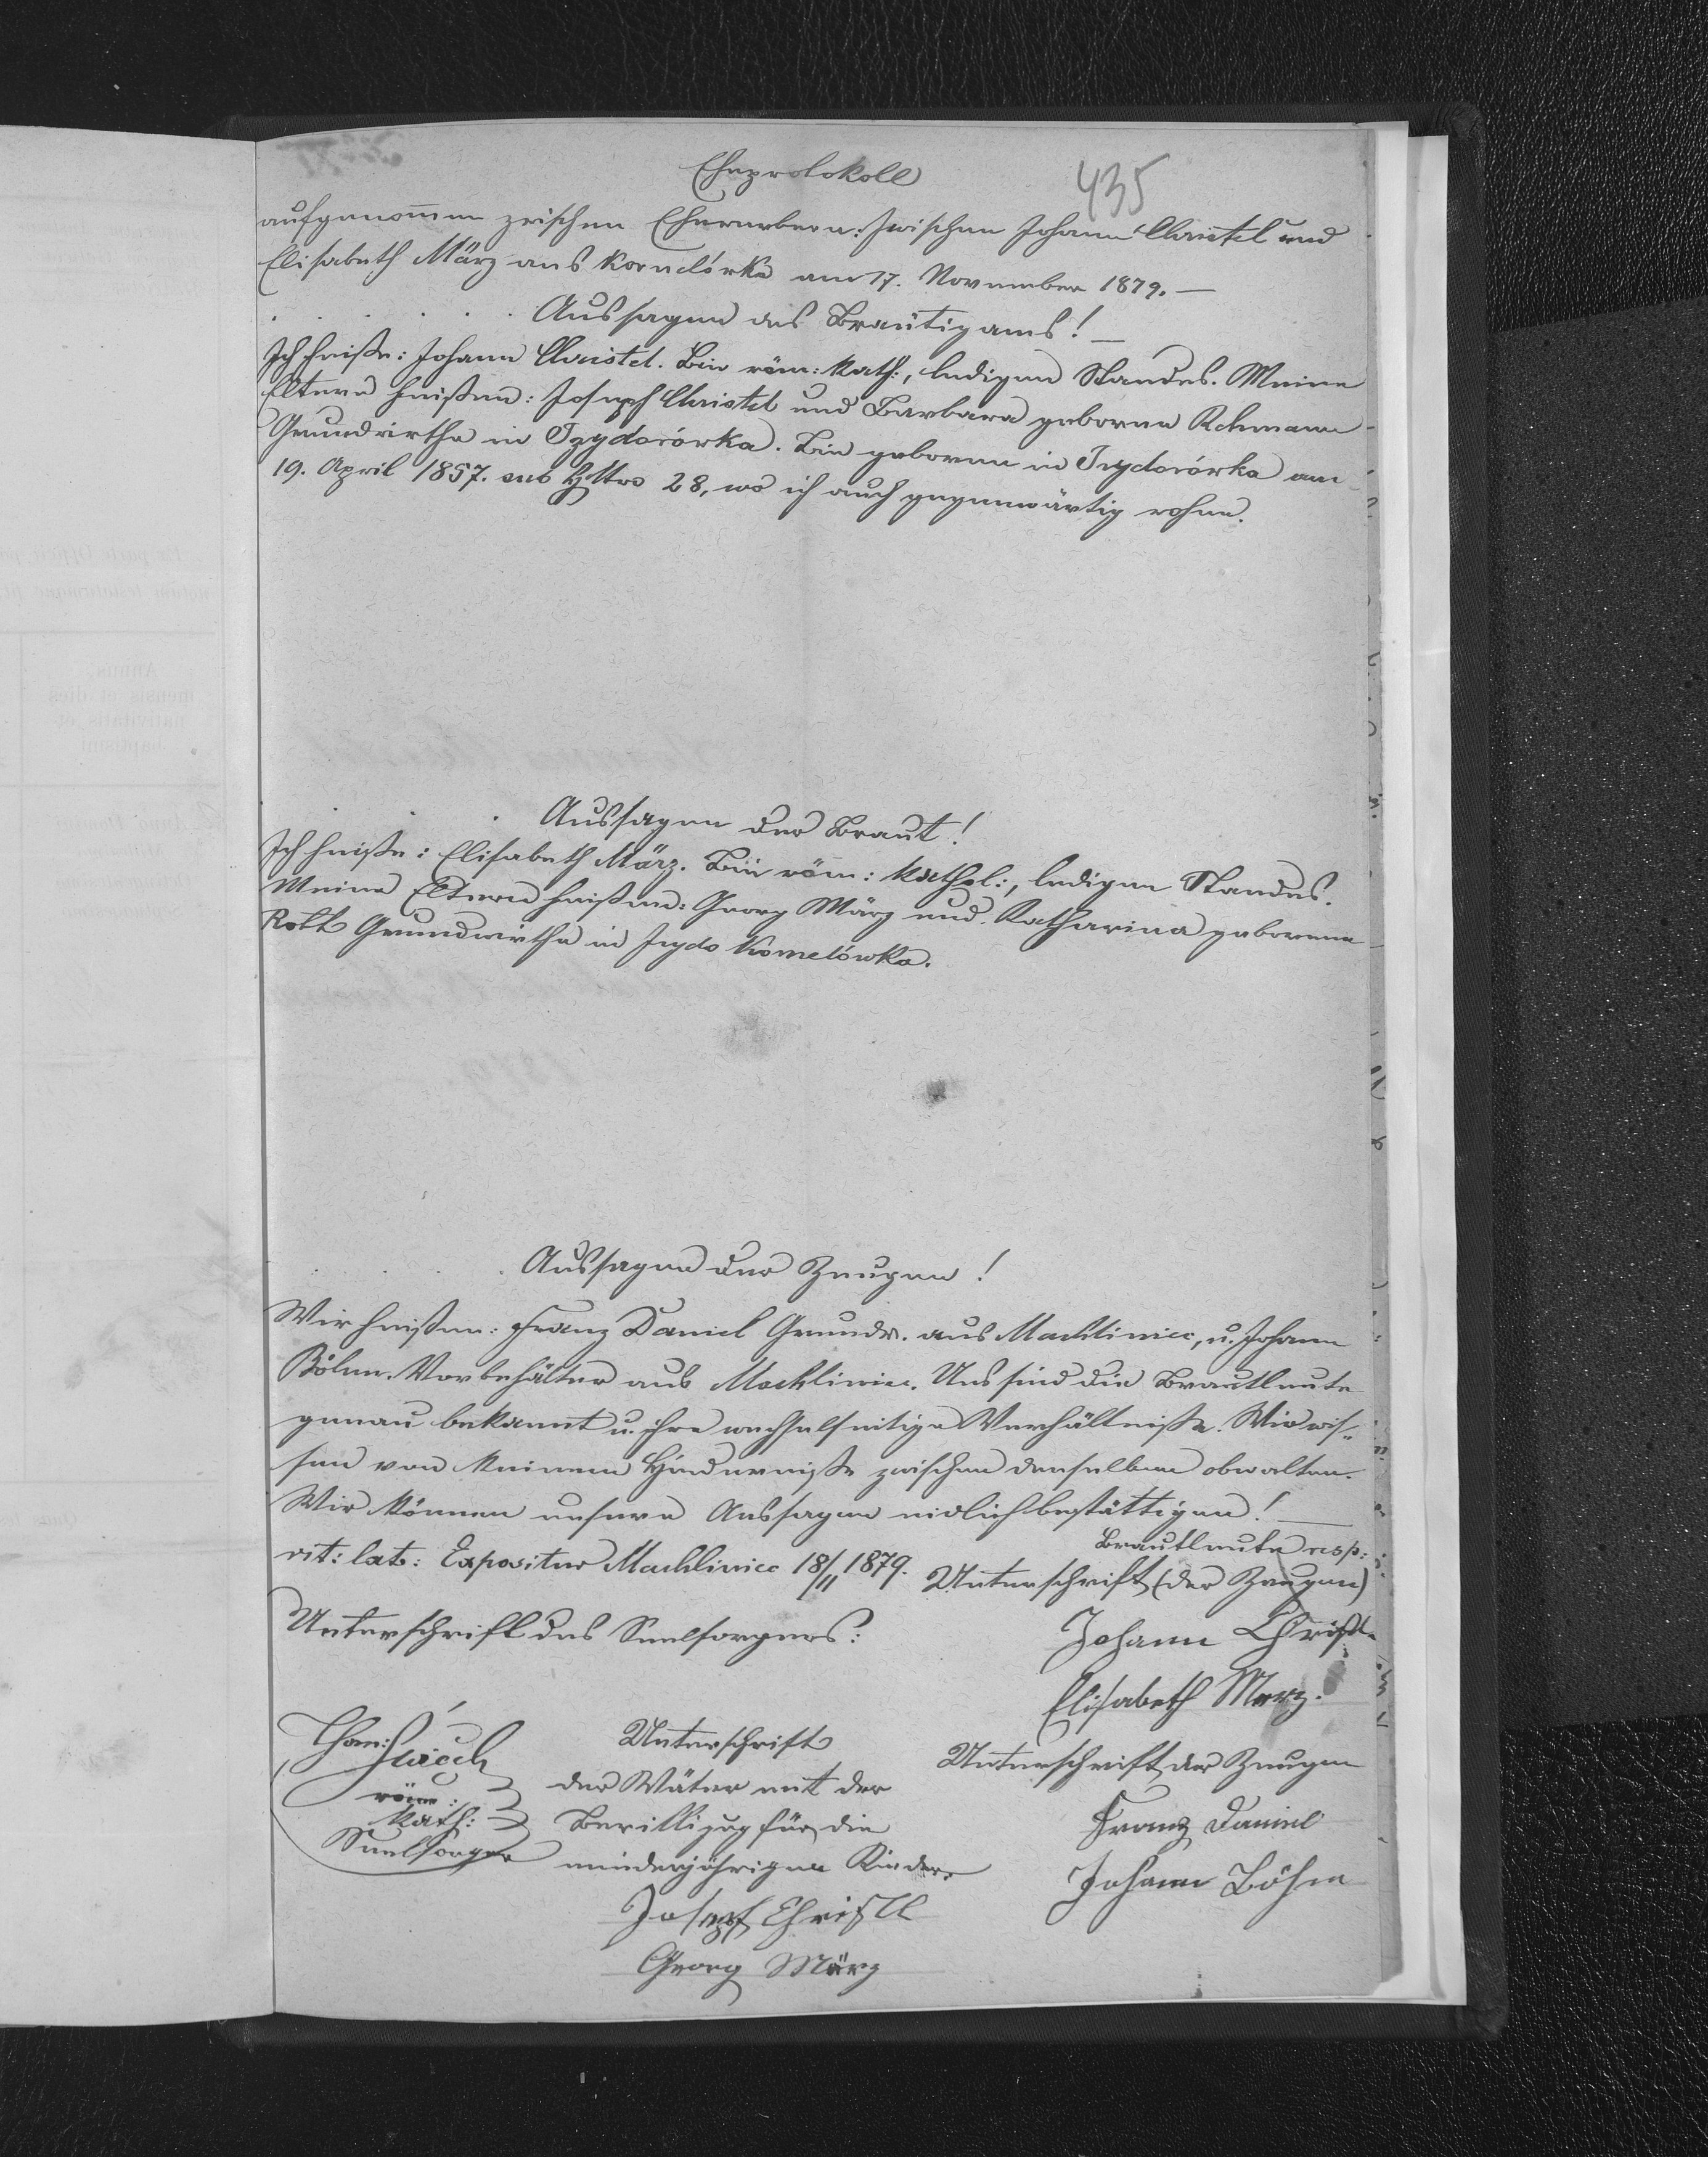 Eheprotokoll
435
aufgenommen zwischen Ehewerbern: zwischen Johann Christel und
Elisabeth März aus Kornelówka am 17. November 1879. —
Aussagen des Bräutigams! —
Ich heiße: Johann Christel. Bin röm: kath:, ledigen Standes. Meine
Eltern heißen: Joseph Christel und Barbara geborene Rehmann
Grundwirthe in Izydorówka. Bin geboren in Izydorówka am
19. April 1857. sub HNro 28, wo ich auch gegenwärtig wohne.
Aussagen der Braut!
Ich heiße: Elisabeth März. Bin röm: kathol:, ledigen Standes.
Meine Eltern heißen: Georg März und Katharina geborene
Grundwirthe in Izydo Kornelówka.
Aussagen der Zeugen!
Wir heißen: Franz Daniel Grundw. aus Machliniec, u. Johann
Böhm Vorbehälter aus Machliniec. Uns sind die Brautleute
genau bekannt u. ihre wechselseitige Verhältniße. Wir wis„
sen von keinem Hinderniße zwischen denselben obwalten.
Wir können unsere Aussagen eidlich bestättigen! —
Brautleute resp:
rit: lat: Expositur Machliniec 18/11 1879. Unterschrift (der Zeugen)
Unterschrift des Seelsorgers:
Johann Christl
Elisabeth Merz.
röm:
kath:
Seelsorger
Unterschrift
der Väter mit der
Bewilligug für die
minderjährigen Kinder.
Joseph Christl
Georg März
Unterschrift der Zeugen
Franz Daniel
Johann Böhm